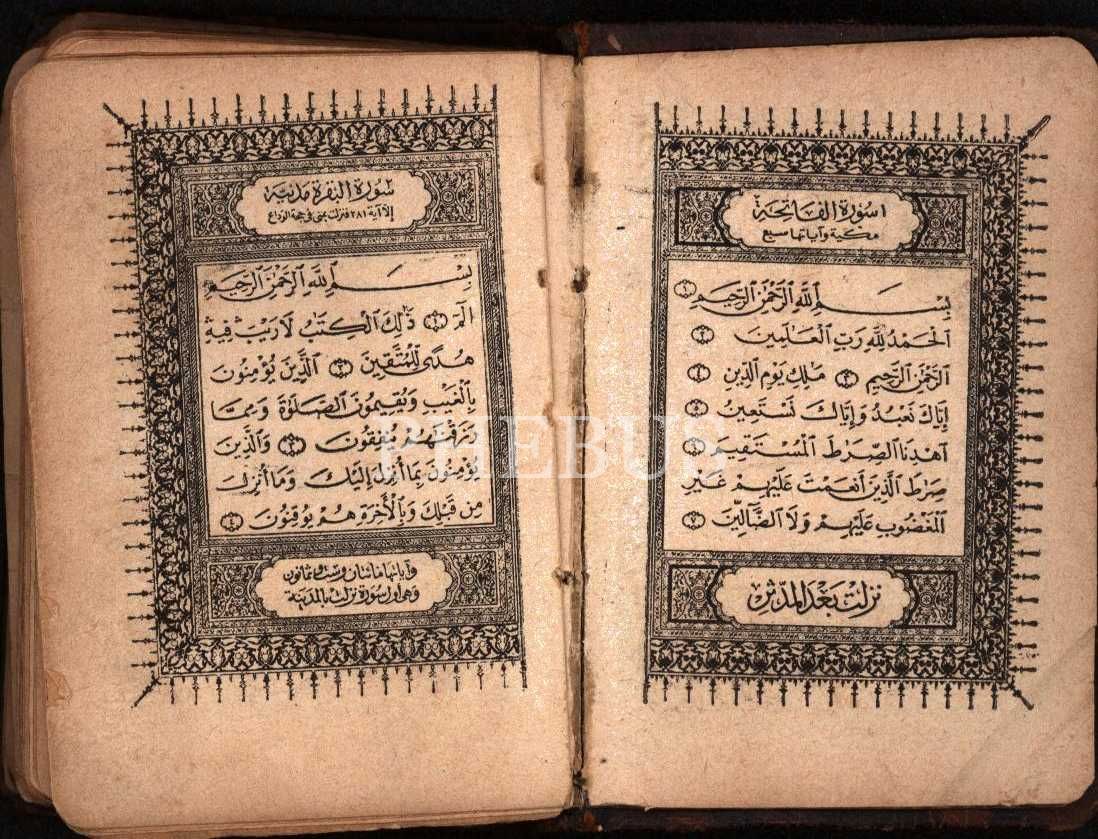 ١ سورة الفاتحة
مكية وآياتها سبع
بِسْمِ ٱللَّهِ ٱلرَّحْمَٰنِ ٱلرَّحِيمِ ١
ٱلْحَمْدُ لِلَّهِ رَبِّ ٱلْعَٰلَمِينَ ٢
ٱلرَّحْمَٰنِ ٱلرَّحِيمِ ٣ مَٰلِكِ يَوْمِ ٱلدِّينِ ٤
إِيَّاكَ نَعْبُدُ وَإِيَّاكَ نَسْتَعِينُ ٥
ٱهْدِنَا ٱلصِّرَٰطَ ٱلْمُسْتَقِيمَ ٦
صِرَٰطَ ٱلَّذِينَ أَنْعَمْتَ عَلَيْهِمْ غَيْرِ
ٱلْمَغْضُوبِ عَلَيْهِمْ وَلَا ٱلضَّآلِّينَ ٧
نزلت بعد المدثر
سورة البقرة مدنية
إلا آية ٢٨١ فنزلت بمنى في حجة الوداع
بِسْمِ ٱللَّهِ ٱلرَّحْمَٰنِ ٱلرَّحِيمِ
الٓمٓ ١ ذَٰلِكَ ٱلْكِتَٰبُ لَا رَيْبَ فِيهِ
هُدًى لِّلْمُتَّقِينَ ٢ ٱلَّذِينَ يُؤْمِنُونَ
بِٱلْغَيْبِ وَيُقِيمُونَ ٱلصَّلَوٰةَ وَمِمَّا
رَزَقْنَٰهُمْ يُنفِقُونَ ٣ وَٱلَّذِينَ
يُؤْمِنُونَ بِمَآ أُنزِلَ إِلَيْكَ وَمَآ أُنزِلَ
مِن قَبْلِكَ وَبِٱلْأَخِرَةِ هُمْ يُوقِنُونَ ٤
وآياتها مائتان وست وثمانون
وهى أول سورة نزلت بالمدينة
PHEBUS